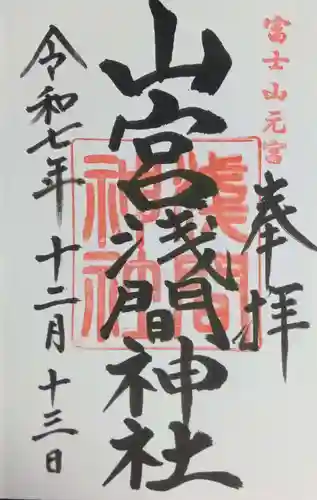 富士山元宮
奉拝
山宮浅間神社
浅間神社
令和七年十二月十三日